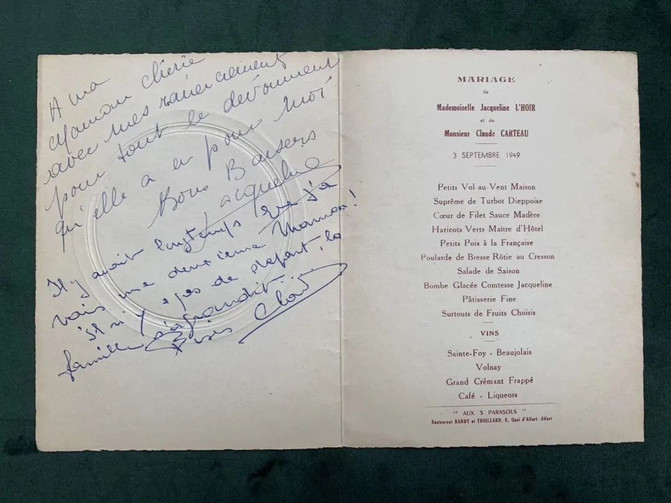 A ma
Maman chérie
avec mes remerciements
pour tout le dévouement
qu'elle a eu pour moi
Bons Baisers
Jacqueline
Il y avait longtemps que je
vais une deuxième Maman !
il n'y a pas de départ, la
famille s'agrandit...
Bises Claude
MARIAGE
de
Mademoiselle Jacqueline L'HOIR
et de
Monsieur Claude CARTEAU
3 SEPTEMBRE 1949
Petits Vol au-Vent Maison
Suprême de Turbot Dieppoise
Cœur de Filet Sauce Madère
Haricots Verts Maître d'Hôtel
Petits Pois à la Française
Poularde de Bresse Rôtie au Cresson
Salade de Saison
Bombe Glacée Comtesse Jacqueline
Pâtisserie Fine
Surtouts de Fruits Choisis
VINS
Sainte-Foy - Beaujolais
Volnay
Grand Crémant Frappé
Café - Liqueurs
" AUX 3 PARASOLS "
Restaurant BARDY et 9, Quai d'Alfort, Alfort